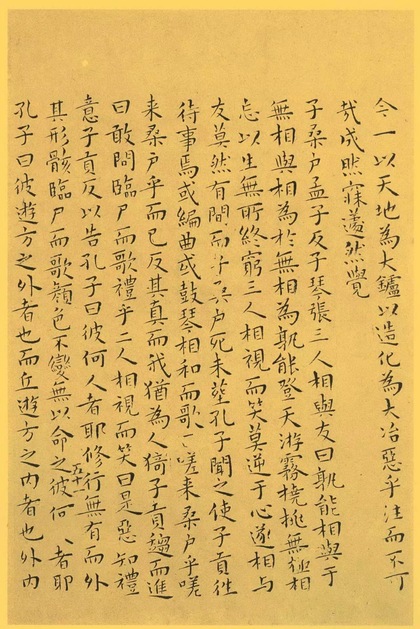 今一以天地為大鑪以造化為大冶惡乎往而不可
哉成然寐蘧然覺
子桑戶孟子反子琴張三人相與友曰孰能相與于
無相與相為於無相為孰能登天游霧橈挑無極相
忘以生無所終窮三人相視而笑莫逆于心遂相与
友莫然有間而子桑戶死未葬孔子聞之使子貢往
待事焉或編曲或鼓琴相和而歌曰嗟来桑戶乎嗟
来桑戶乎而已反其真而我猶為人猗子貢趨而進
曰敢問臨尸而歌禮乎二人相視而笑曰是惡知禮
意子貢反以告孔子曰彼何人者耶修行無有而外
其形骸臨尸而歌顏色不變無以命之彼何人者耶
孔子曰彼遊方之外者也而丘遊方之内者也外内